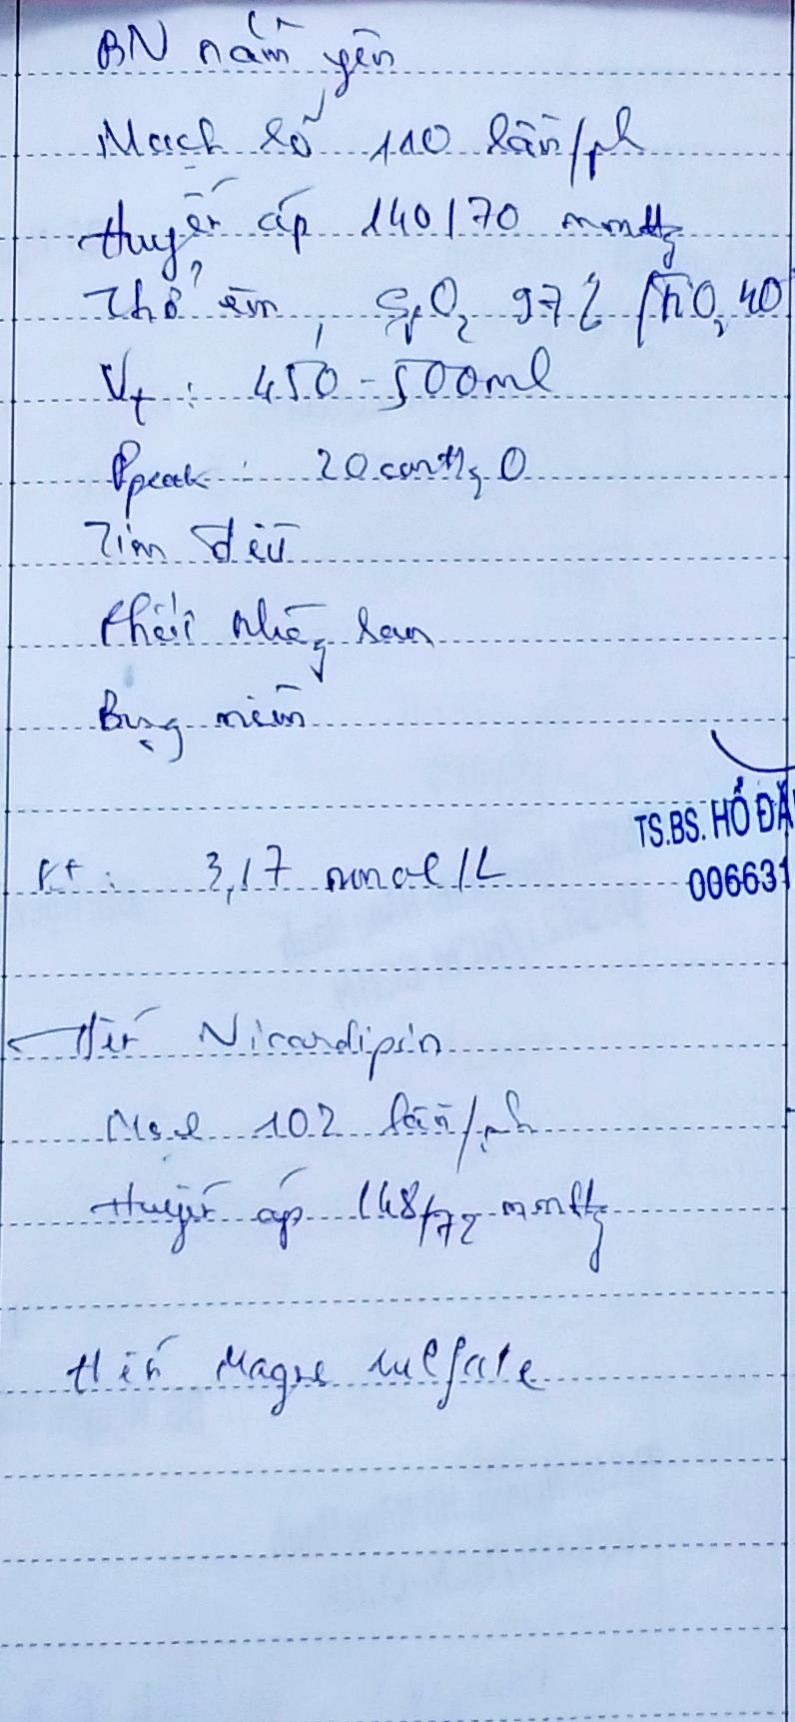 BN nằm yên
Mạch rõ 110 lần/ph
Huyết áp 140/70 mmHg
Thở êm, SpO2 97% FiO2 40
Vt: 450-500ml
Ppeak: 20cmH2O
Tim đều
Phổi không ran
Bụng mềm
TS.BS. HỒ ĐĂ
006631
K+: 3,17 mmol/L
Hết Nicardipin
Mạch 102 lần/ph
Huyết áp 148/72 mmHg
Hết Magne sulfate